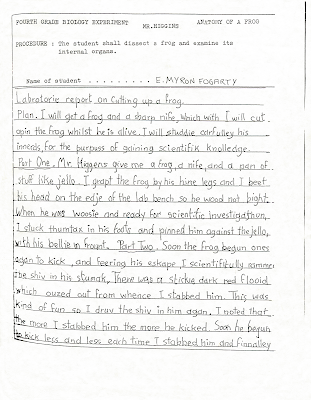 FOURTH GRADE BIOLOGY EXPERIMENT MR. HIGGINS ANATOMY OF A FROG
PROCEDURE : The student shall dissect a frog and examine its
internal organs.
Name of student . . . . . . . . . . E. MYRON FOGARTY
Labratorie report on Cutting up a frog.
Plan. I will get a frog and a sharp nife, which with I will cut
opin the frog whilst he is alive. I will studdie carfulley his
innerds, for the purpuss of gaining scientifik knolledge.
Part One. Mr. Higgens give me a frog, a nife, and a pan of
stuff like jello. I grapt the frog by his hine legs and I beet
his head on the edje of the lab bench so he wood not bight.
When he was woosie and ready for scientific investigashun,
I stuck thumtax in his foots and pinned him against the jello,
with his bellie in frount. Part Two. Soon the frog begun ones
agan to kick, and feering his eskape, I scientifikully rammed
the shiv in his stumak. There was a stickie dark red flooid
which ouzed out from whence I stabbed him. This was
kind of fun so I druv the shiv in him agan. I noted that
the more I stabbed him the more he kicked. Soon he begun
to kick less and less each time I stabbed him and finnalley